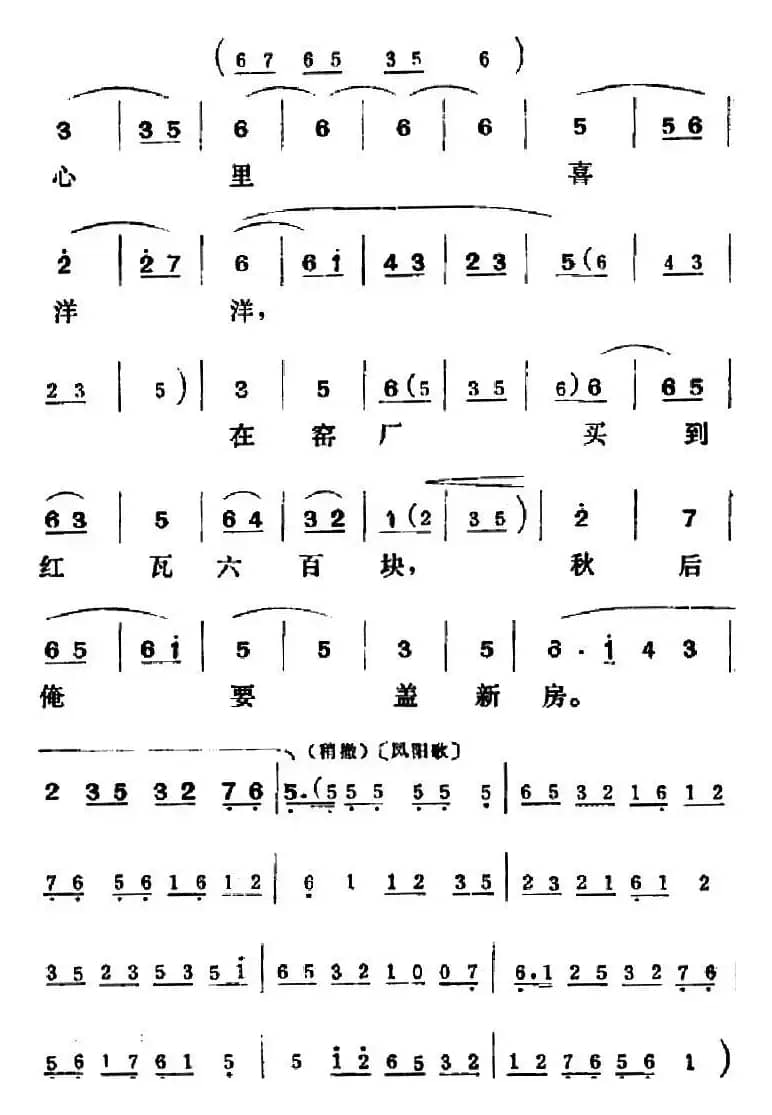 ( 6 7 6 5 3 5 6 )
3 | 3 5 | 6 | 6 | 6 | 6 | 5 | 5 6 |
心 里 喜
2̇ | 2̇ 7 | 6 | 6 1̇ | 4 3 | 2 3 | 5 ( 6 | 4 3 |
洋 洋,
2 3 | 5 ) | 3 | 5 | 6 ( 5 | 3 5 | 6 ) 6 | 6 5 |
在 窑 厂 买 到
6 3 | 5 | 6 4 | 3 2 | 1 ( 2 | 3 5 ) | 2̇ | 7 |
红 瓦 六 百 块, 秋 后
6 5 | 6 1̇ | 5 | 5 | 3 | 5 | 6 · 1̇ 4 3 |
俺 要 盖 新 房。
(稍撤)〔凤阳歌〕
2 3 5 3 2 7̣ 6̣ | 5̣ . ( 5̣ 5̣ 5̣ 5̣ 5̣ 5̣ | 6 5 3 2 1 6̣ 1 2
7̣ 6̣ 5̣ 6̣ 1 6̣ 1 2 | 6̣ 1 1 2 3 5 | 2 3 2 1 6̣ 1 2
3 5 2 3 5 3 5 1̇ | 6 5 3 2 1 0 0 7̣ | 6̣ . 1 2 5 3 2 7̣ 6̣
5̣ 6̣ 1 7̣ 6̣ 1 5̣ | 5 1̇ 2̇ 6 5 3 2 | 1 2 7̣ 6̣ 5̣ 6̣ 1 )